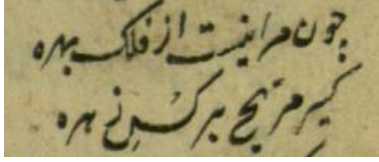 چون مرا نیست از فلک بهره
گیر مریخ بر کس نی مره